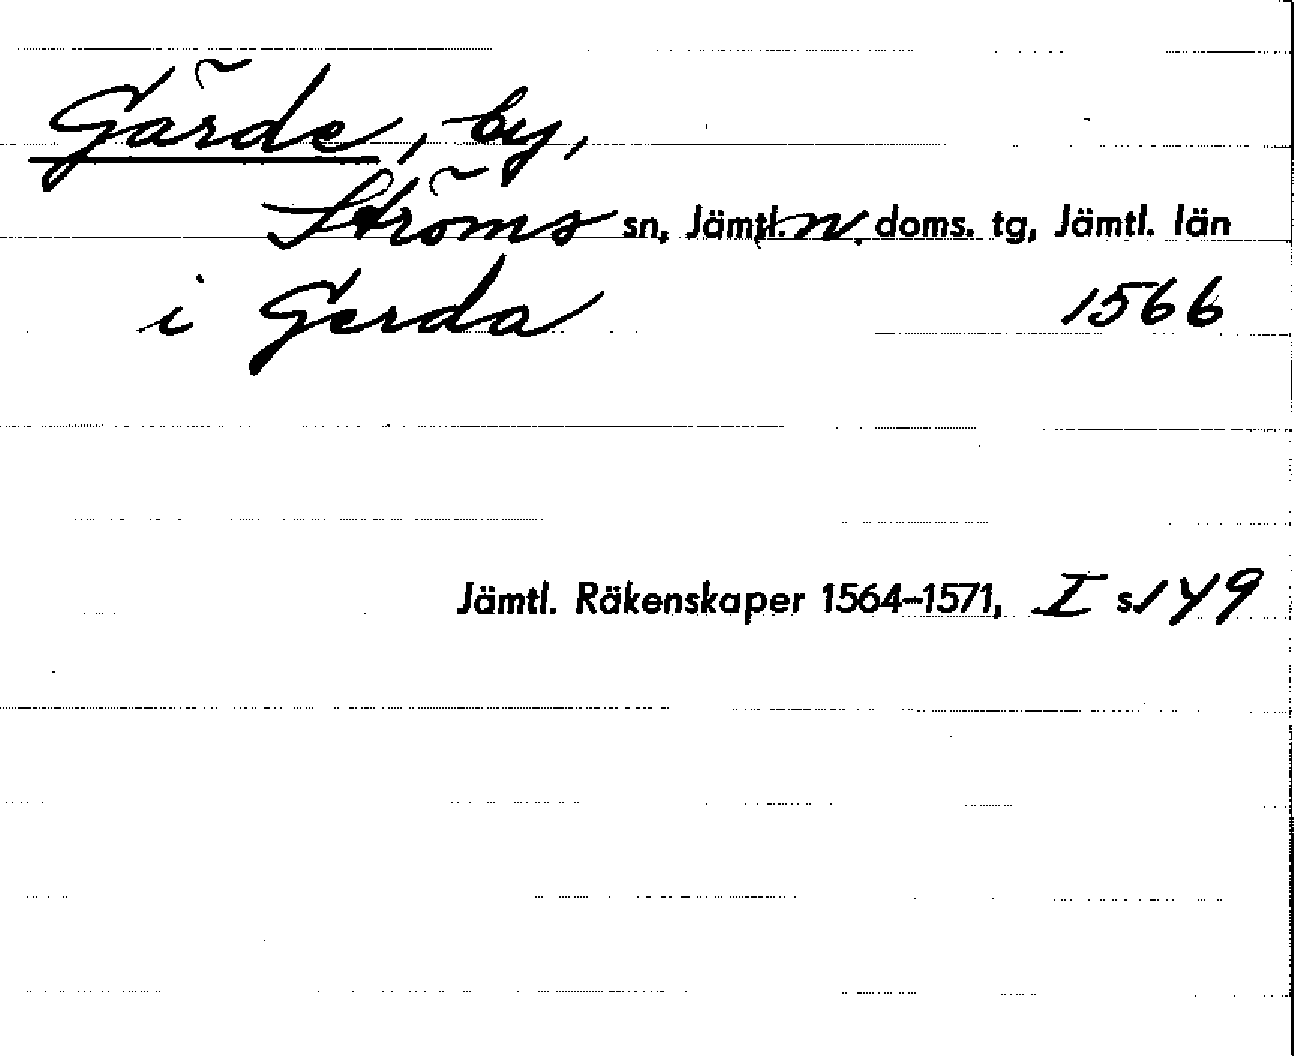 Gärde, by,
Ströms sn, Jämtl. n. doms. tg, Jämtl. län
i Gerda 1566
Jämtl. Räkenskaper 1564–1571, I s. 149